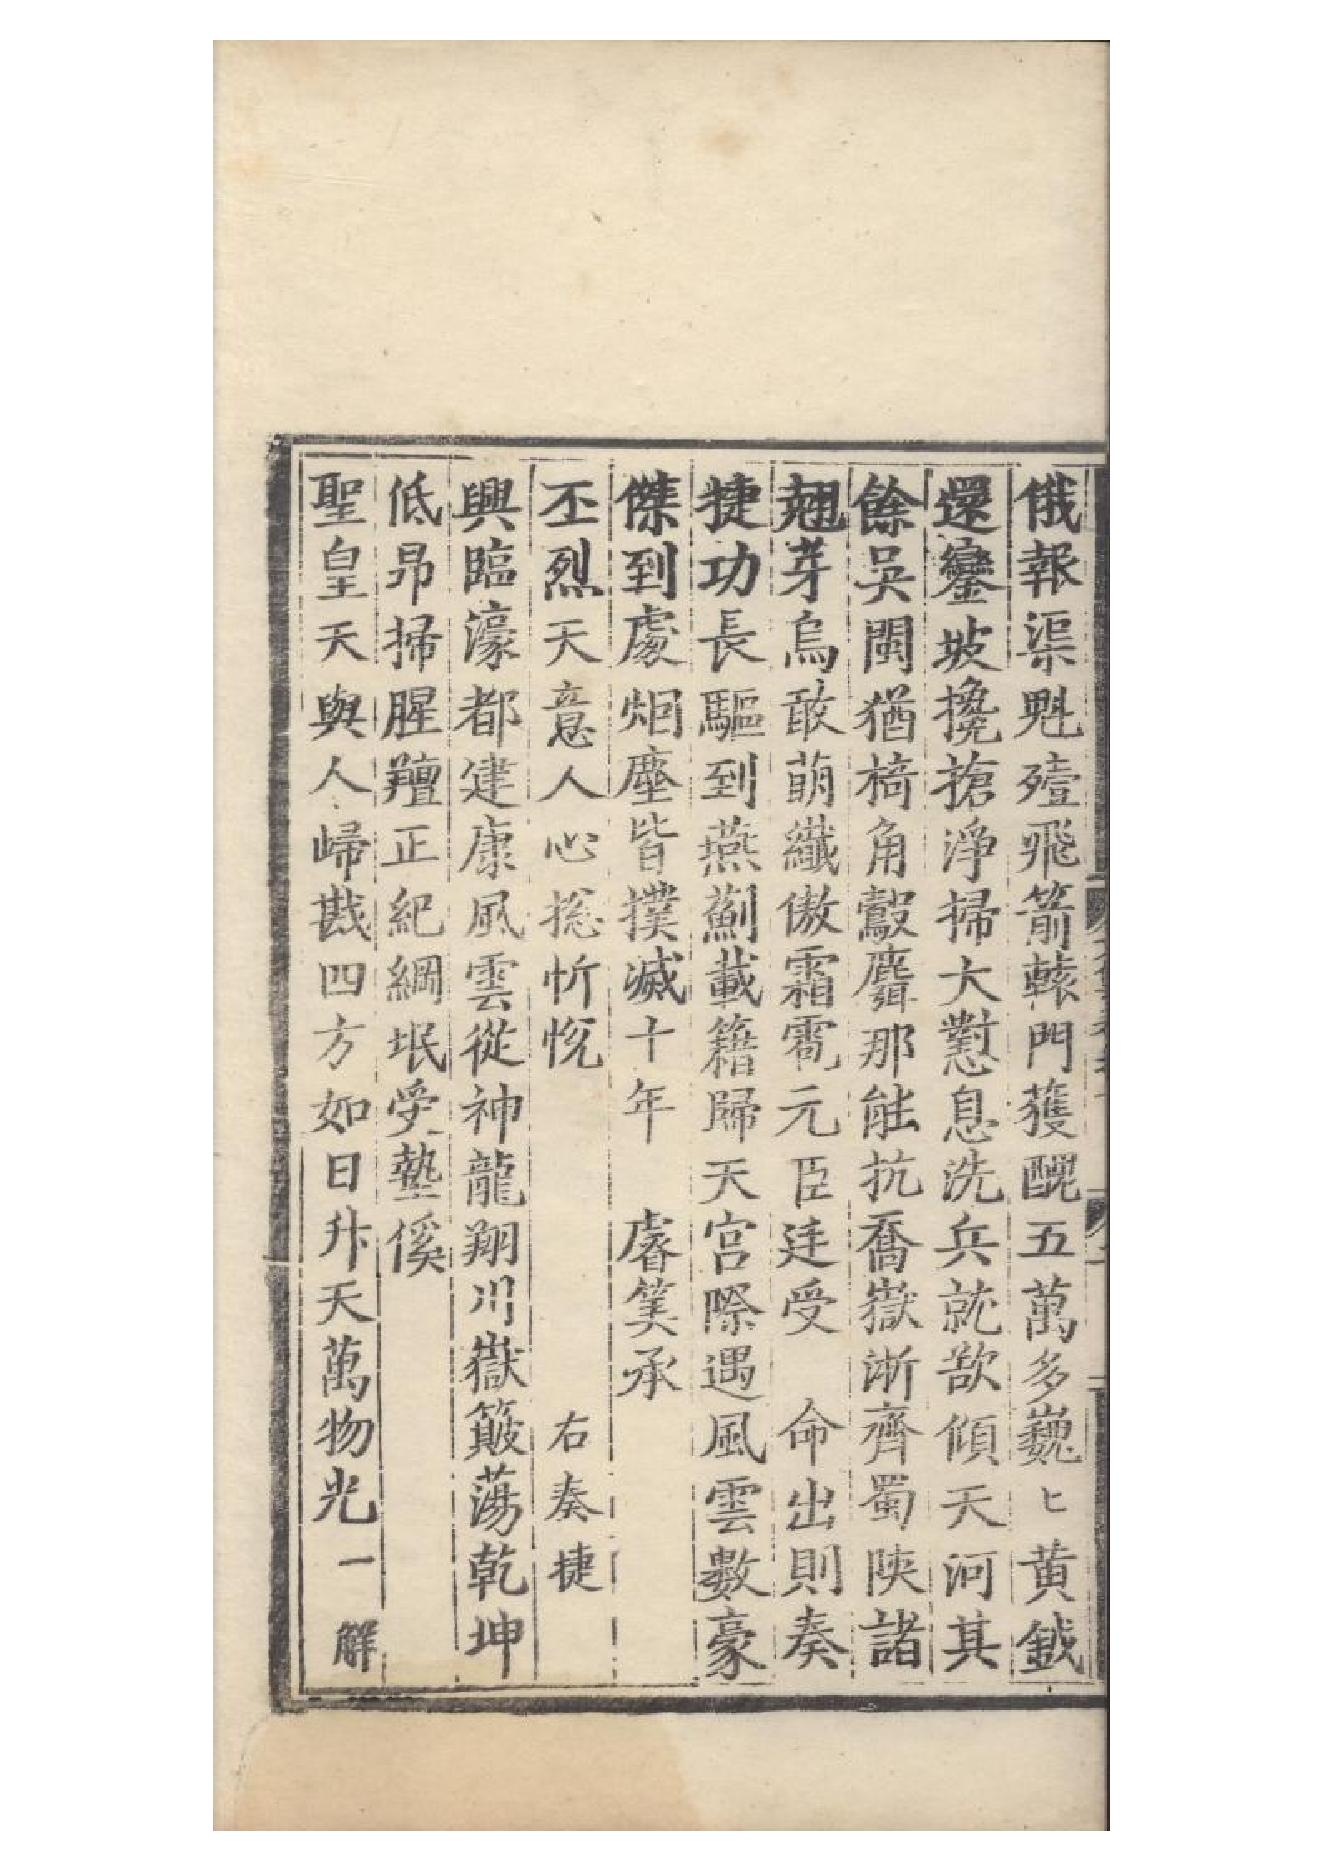 俄報渠魁殪飛箭轅門獲醜五萬多巍〻黃鉞
還鑾坡攙搶淨掃大憝息洗兵就欲傾天河其
餘吳閩猶掎角鷇麛那能抗喬嶽淅齊蜀陜諸
翹芽烏敢萌纖傲霜雹元臣廷受　命出則奏
捷功長驅到燕薊載籍歸天宮際遇風雲數豪
傑到處烟塵皆撲滅十年　睿筭承
丕烈天意人心揔忻恱　右奏捷
興臨濠都建康風雲從神龍翔川嶽簸蕩乾坤
低昂掃腥羶正紀綱垊受墊傒
聖皇天與人歸戡四方如日升天萬物光一解